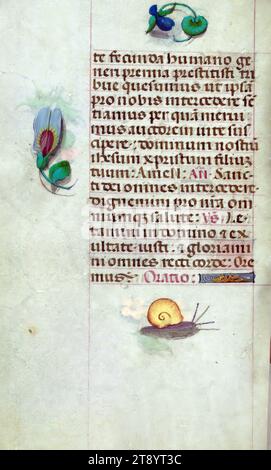 te fecunda humano ge
neri premia prestitisti tri
bue quesumus ut ipsa
pro nobis intercedere se
tiamus per quam merui
mus auctorem vite susc
ipere: dominum nostrum
ihesum xpistum filium
tuum: Amen: An̄. Sanc
ti dei omnes intercedere
dignemini pro nra om
nium q3 salute: Vs. Le
tamini in domino et ex
ultate iusti: et gloriami
ni omnes recti corde: Ore
mus: Oratio:
alamy
Image ID: 2T8YT3C
www.alamy.com